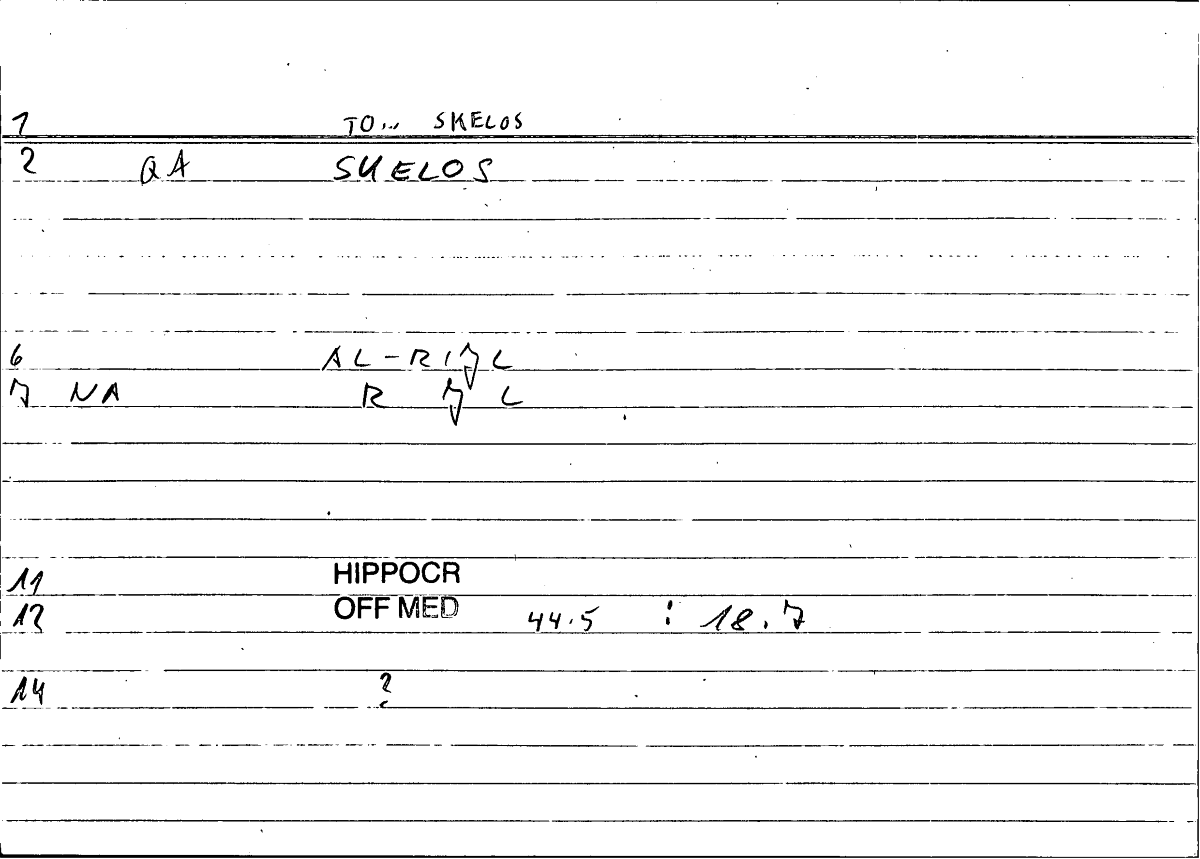 1 TO... SKELOS
2 QA SKELOS
6 AL-RIJL
7 NA R J L
11 HIPPOCR
12 OFF MED 44.5 : 18.7
14 ?